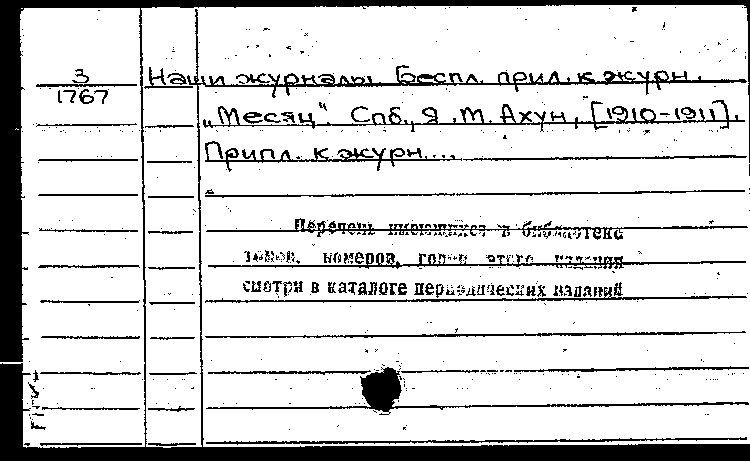 3
1767
Наши журналы. Беспл. прил. к журн.
„Месяц“. Спб., Я. М. Ахун, [1910-1911].
Припл. к журн....
Перечень имеющихся в библиотеке
томов, номеров, годов этого издания
смотри в каталоге периодических изданий